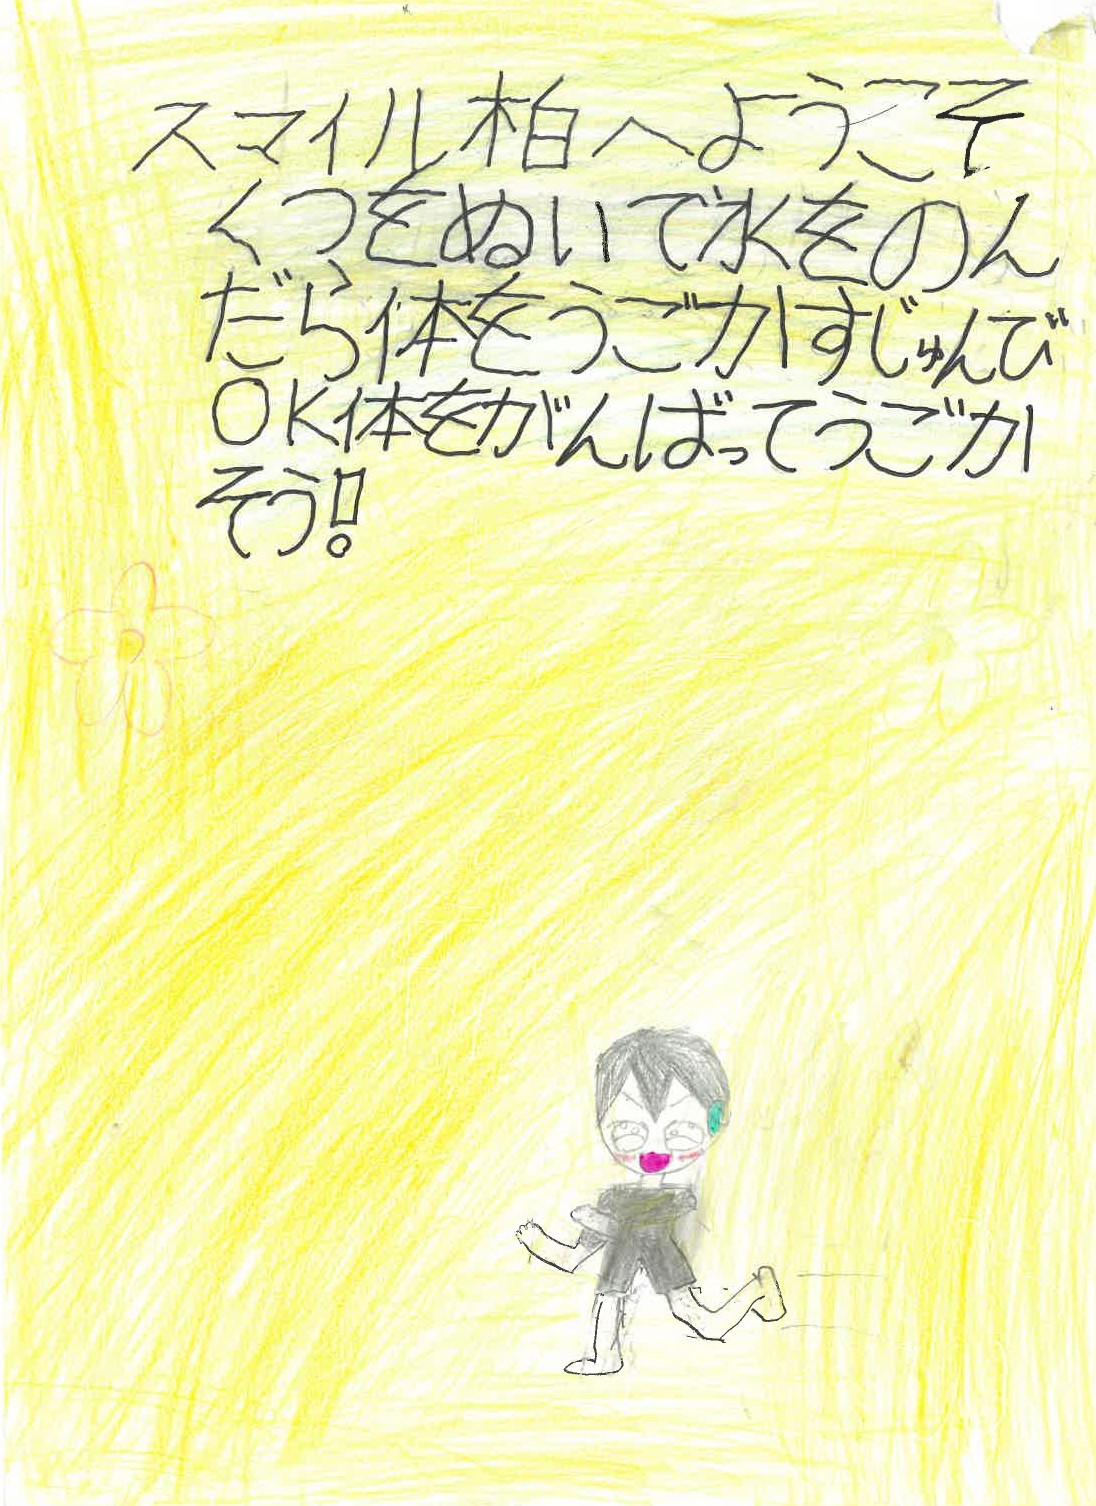 スマイル柏へようこそ
くつをぬいで水をのん
だら体をうごかすじゅんび
OK体をがんばってうごか
そう!